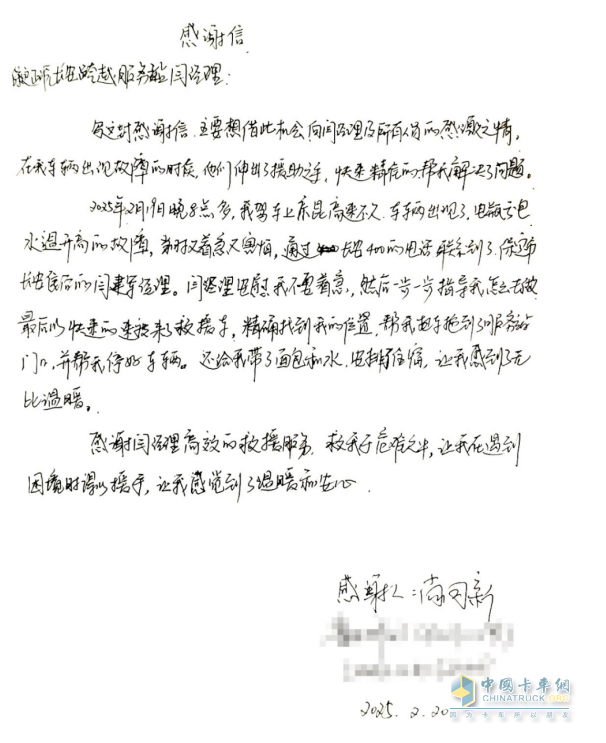 感谢信
保定市长安跨越服务站闫经理：
每封感谢信，主要想借此机会向闫经理及所有人员的感激之情，
在我车辆出现故障的时候，他们伸出了援助之手，快速精准的帮我解决了问题。
2025年2月19日晚8点多，我驾车上京昆高速不久，车辆出现了电瓶亏电
水温升高的故障，当时又着急又害怕，通过长安400的电话联系到了保定
长安售后的闫建军经理。闫经理安慰我不要着急，然后一步一步指导我怎么去做
最后以快速的速度派来了救援车，精确找到我的位置，帮我把车拖到了服务站
门口，并帮我停好车辆。还给我带了面包和水，安排好住宿，让我感到了无
比温暖。
感谢闫经理高效的救援服务，救我于危难之中，让我在遇到
困境时得以援手，让我感觉到了温暖和安心。
感谢人：尚
新
2025.2.20
中国卡车网
CHINATRUCK.ORG
因为卡车所以朋友